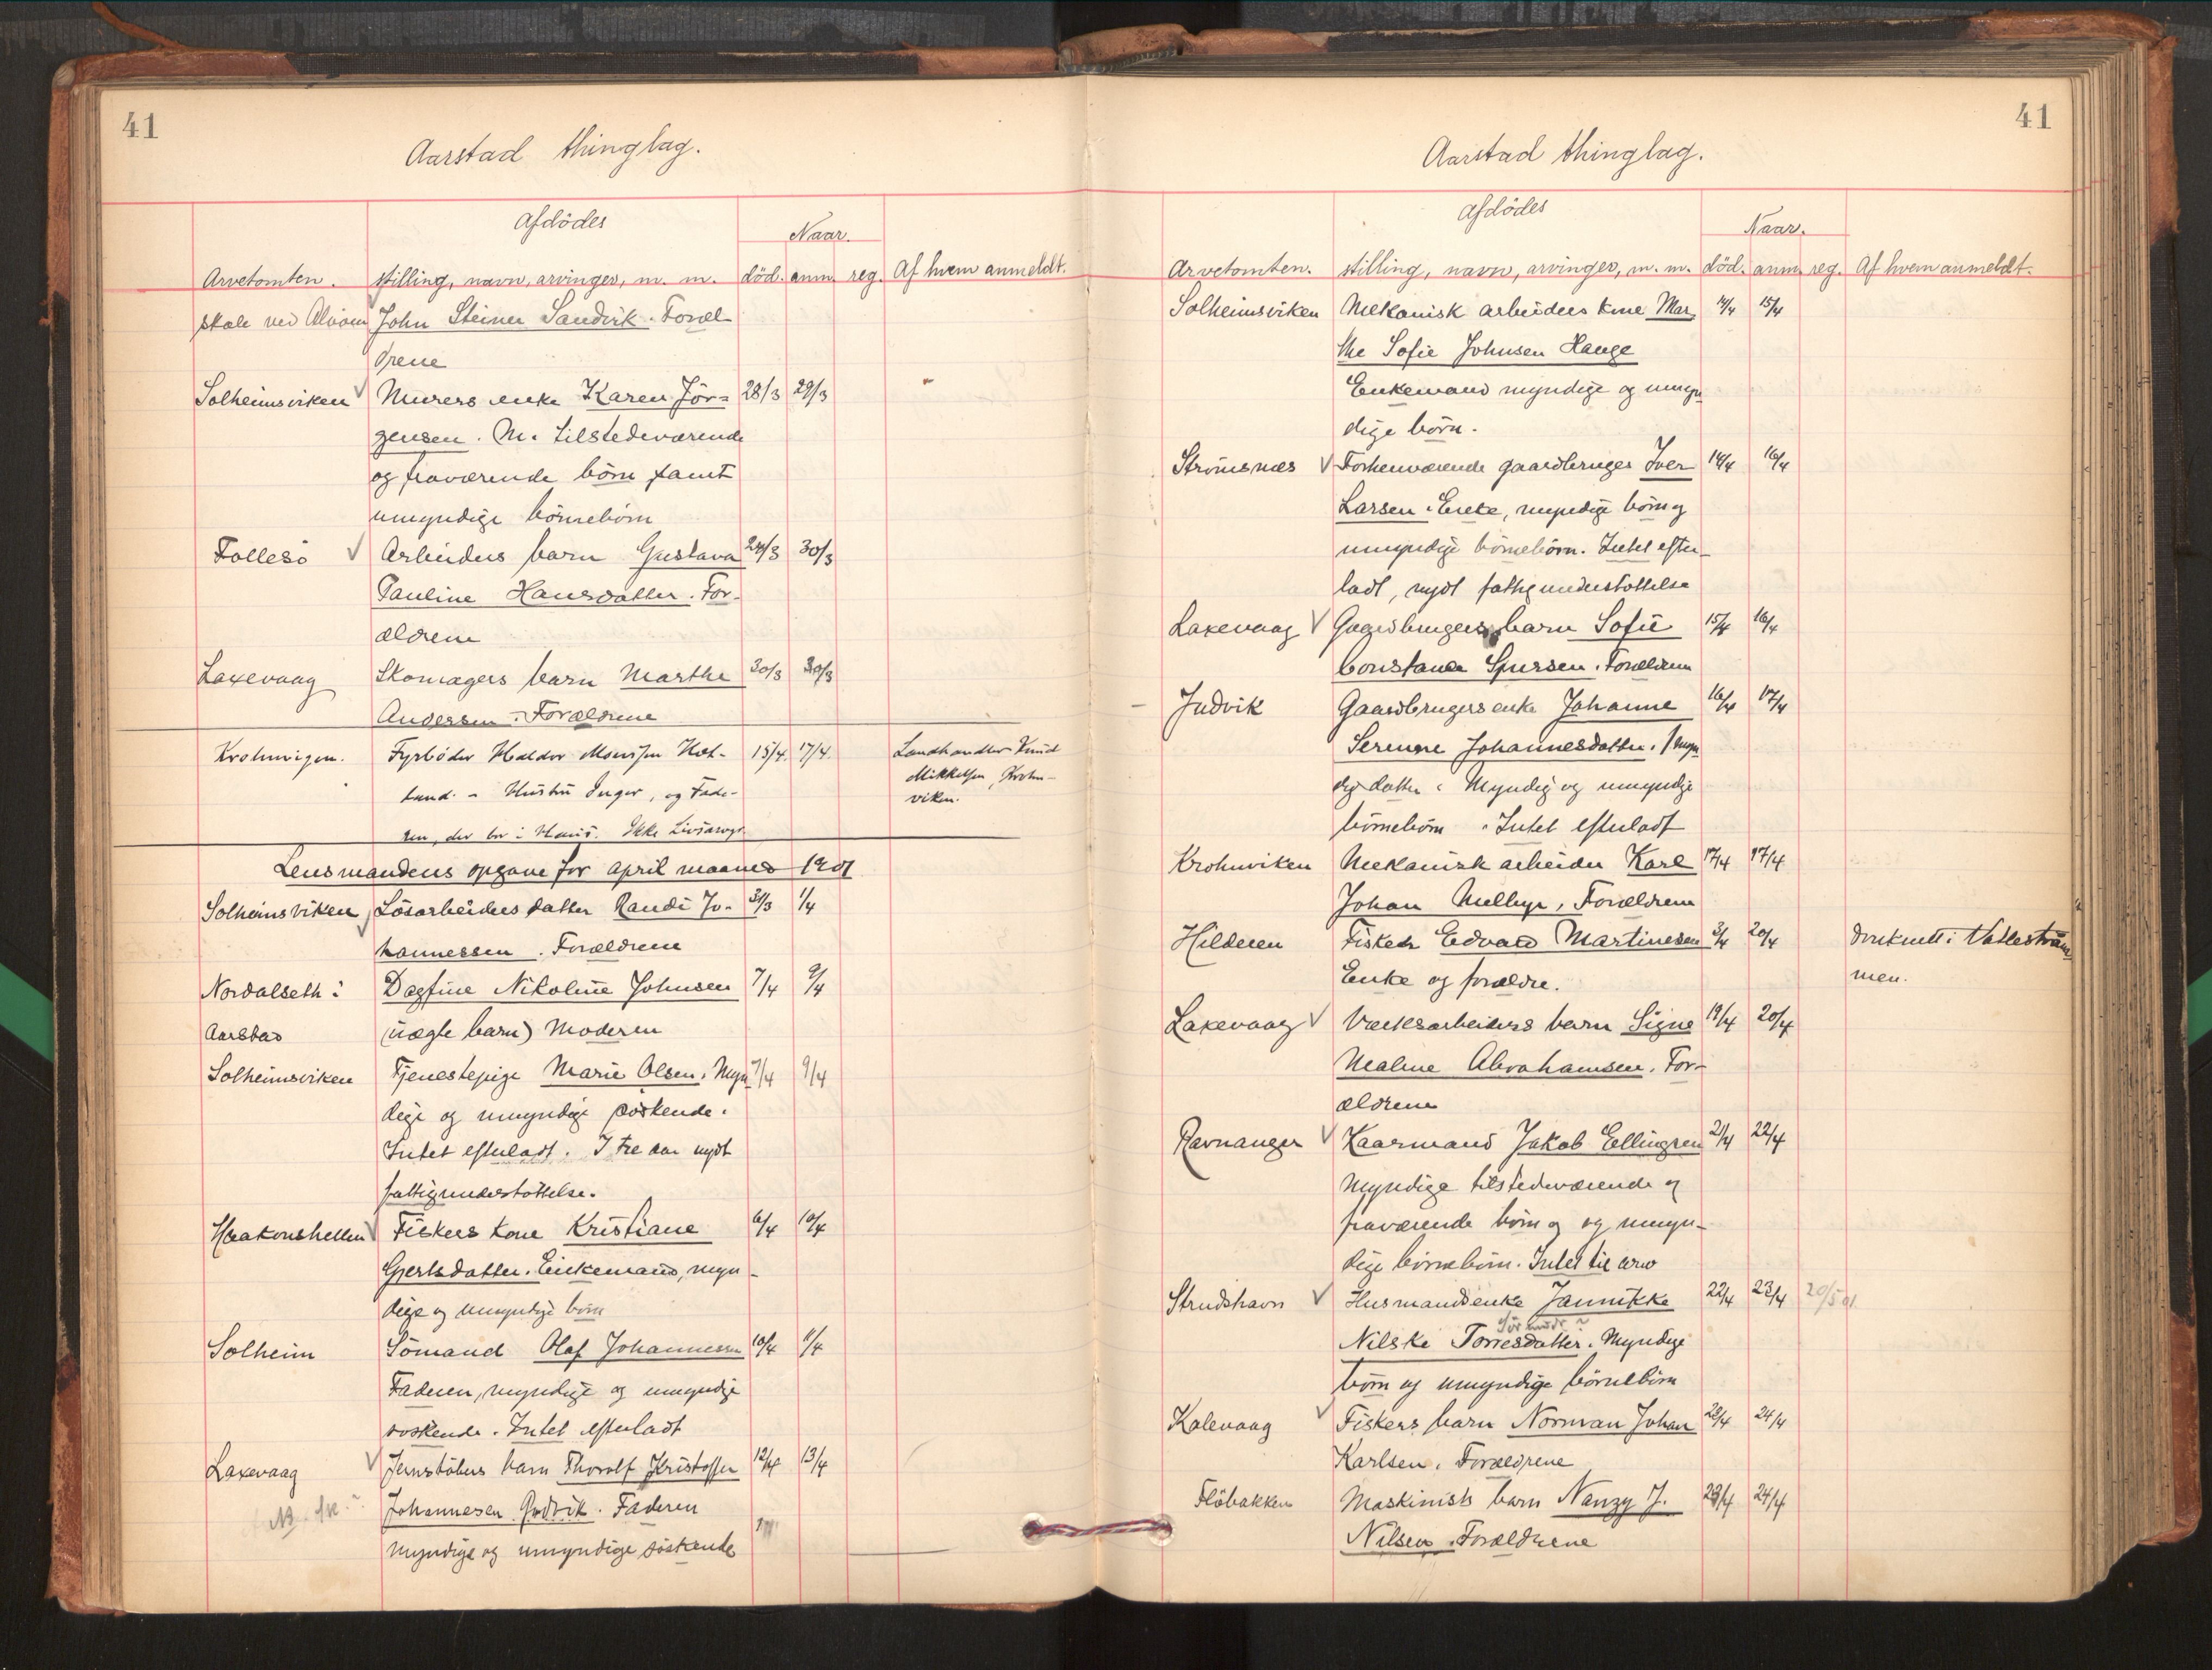 41
Aarstad thinglag.
Afdödes
Naar.
Arvetomten. stilling, navn, arvinger, m. m. död. anm. reg. Af hvem anmeldt.
Skale ved Alvöen John Steiner Sandvik. Foræl-
drene
Solheimsviken Murers enke Karen Jör- 28/3 29/3
gensen. M. tilstedeværende
og fraværende börn samt
umyndige börnebörn
Follesö Arbeiders barn Gustava 24/3 30/3
Pauline Hansdatter. For-
ældrene
Laxevaag Skomagers barn Marthe 30/3 30/3
Andersen. Forældrene
Krohnvigen. Fyrböder Haldor Monssen Hot- 15/4. 17/4. Landhandler Knud
land. - Hustru Inger, og Fade- Mikkelsen, Krohn-
ren, der bor i Haus. Ikke Livsarvge. viken.
Lensmandens opgave for april maaned 1901
Solheimsviken Lösarbeiders datter Randi Jo- 31/3 1/4
hannessen. Forældrene
Nordalseth i Dagfine Nikoline Johnsen 7/4 9/4
Aarstad (uægte barn) Moderen
Solheimsviken Tjenestepige Marie Olsen. Myn- 7/4 9/4
dige og umyndige söskende.
Intet efterladt. I tre aar nydt
fattigunderstöttelse.
Haakonshellen Fiskers kone Kristiane 6/4 10/4
Gjertsdatter. Enkemand, myn-
dige og umyndige börn
Solheim Sömand Olaf Johannessen 10/4 11/4
Faderen, myndige og umyndige
söskende. Intet efterladt
Laxevaag Jernstöbers barn Thorolf Kristoffer 12/4 13/4
Johannesen Godvik. Faderen
Myndige og umyndige söskende
41
Aarstad thinglag.
Afdödes
Naar.
Arvetomten. stilling, navn, arvinger, m. m. död. anm. reg. Af hvem anmeldt.
Solheimsviken Mekanisk arbeiders kone Mar- 14/4 15/4
the Sofie Johnsen Hauge
Enkemand myndige og umyn-
dige börn.
Strömsnæs Forhenværende gaardbruger Iver 14/4 16/4
Larsen. Enke, myndige börn og
umyndige börnebörn. Intet efter-
ladt, nydt fattigunderstöttelse
Laxevaag Gaardbrugers barn Sofie 15/4 16/4
Constance Sjursen. Forældrene
Judvik Gaardbrugers enke Johanne 16/4 17/4
Serenne Johannesdatter. 1 myn-
dig datter. Myndig og umyndige
börnebörn. Intet efterladt
Krohnviken Mekanisk arbeider Karl 17/4 17/4
Johan Mellbye, Forældrene
Hilderen Fisker Edvard Martinesen 3/4 20/4 druknet i Vatlesträm-
Enke og forældre. men.
Laxevaag Værksarbeiders barn Signe 19/4 20/4
Maline Abrahamsen. For-
ældrene
Ravnanger Kaarmand Jakob Ellingsen 21/4 22/4
Myndige tilstedeværende og
fraværende börn og og umyn-
dige börnebörn. Intet til arv
Strudshavn Husmandsenke Jannikke 22/4 23/4 20/5 01
Nilske Torresdatter. Myndige
börn og umyndige börnebörn
Kolevaag Fiskers barn Norman Johan 22/4 24/4
Karlsen. Forældrene
Flöbakken Maskinists barn Nanzy J. 23/4 24/4
Nilsen. Forældrene